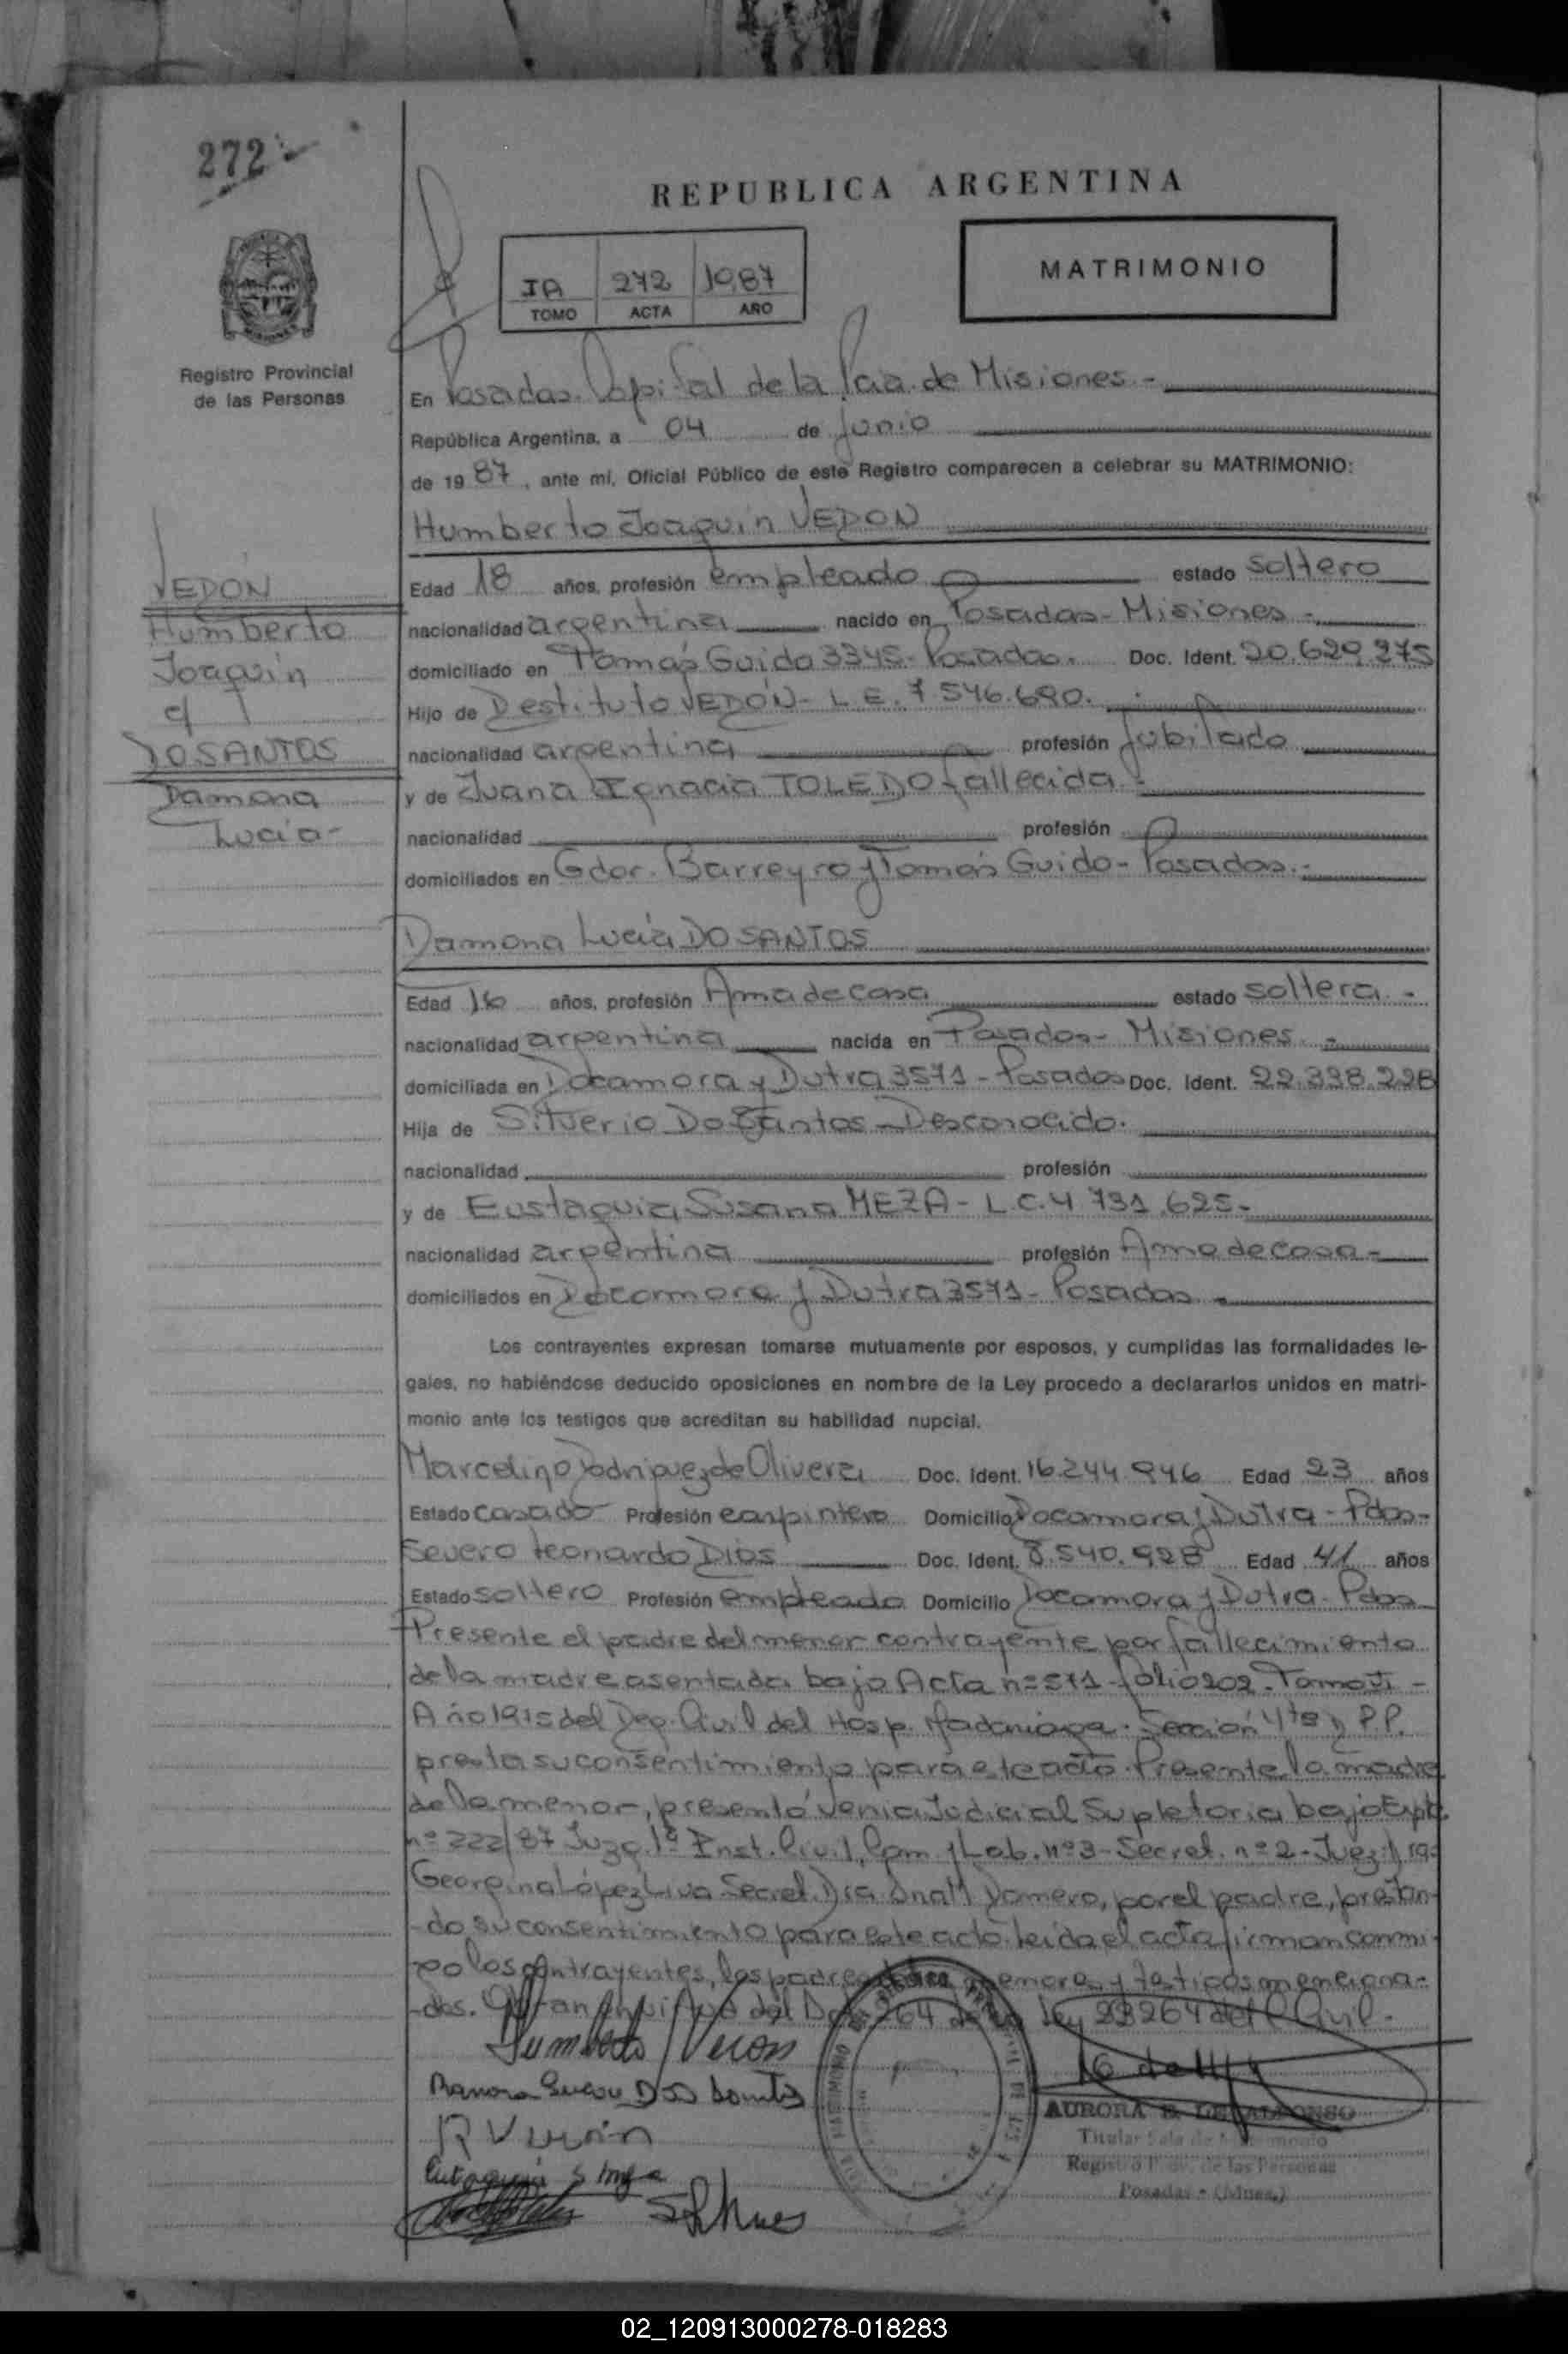 272
REPUBLICA ARGENTINA
IA 272 1987
TOMO ACTA AÑO
MATRIMONIO
Registro Provincial
de las Personas
En Posadas Capital de la Pcia. de Misiones.-
República Argentina, a 04 de junio
de 1987, ante mí, Oficial Público de este Registro comparecen a celebrar su MATRIMONIO:
Humberto Joaquín VEDON
VEDON
Humberto
Joaquín
c/
DO SANTOS
Damona
Lucía-
Edad 18 años, profesión empleado estado soltero
nacionalidad argentina nacido en Posadas- Misiones.-
domiciliado en Tomás Guido 3345- Posadas. Doc. Ident. 20.629.275
Hijo de Destituto VEDÓN- L.E. 7.546.690.
nacionalidad argentina profesión jubilado
y de Juana Ignacia TOLEDO fallecida.-
nacionalidad profesión
domiciliados en Gdor. Barreyro y Tomás Guido- Posadas.-
Damona Lucía DO SANTOS
Edad 16 años, profesión Ama de casa estado soltera.-
nacionalidad argentina nacida en Posadas- Misiones.-
domiciliada en Docamora y Dutra 3571- Posadas Doc. Ident. 22.338.228
Hija de Silverio Do Santos- Desconocido.
nacionalidad profesión
y de Eustaquia Susana MEZA- L.C. 4.731.625-
nacionalidad argentina profesión Ama de casa-
domiciliados en Docamora y Dutra 3571- Posadas.
Los contrayentes expresan tomarse mutuamente por esposos, y cumplidas las formalidades le-
gales, no habiéndose deducido oposiciones en nombre de la Ley procedo a declararlos unidos en matri-
monio ante los testigos que acreditan su habilidad nupcial.
Marcelino Rodriguez de Olivera Doc. Ident. 16.244.946 Edad 23 años
Estado casado Profesión carpintero Domicilio Docamora y Dutra- Pdas-
Severo Leonardo Dios Doc. Ident. 8.540.928 Edad 41 años
Estado soltero Profesión empleado Domicilio Docamora y Dutra- Pdas
Presente el padre del menor contrayente por fallecimiento
de la madre asentada bajo Acta nº 571- folio 202- Tomo
Año 1975 del Dep. Civil del Hosp. Madariaga. Sección 4ta y P.P.
presta su consentimiento para este acto. Presente la madre
de la menor, presentó Venia Judicial Supletoria bajo Expte.
nº 222/87 Juzg. 1ª Inst. Civil, Com. y Lab. nº 3- Secret. nº 2- Juez
Georgina López Liva Secret. Dra. Domero, por el padre, prestan-
do su consentimiento para este acto. Leída el acta firman conmi-
go los contrayentes, los padres menores y testigos menciona-
dos. del 264 Ley 23264 del C. Civil.-
Humberto Veron
Eustaquia S Meza
AURORA B. DE ALFONSO
Titular Sala de Matrimonio
Registro Prov. de las Personas
Posadas - (Mnes.)
02_120913000278-018283